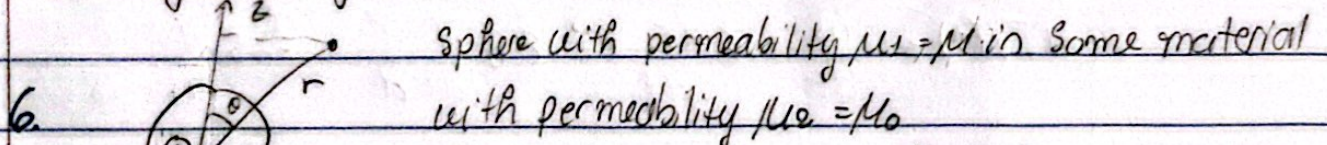 z
Sphere with permeability μ1 = μ in some material
r
6.
θ
with permeability μ2 = μ0